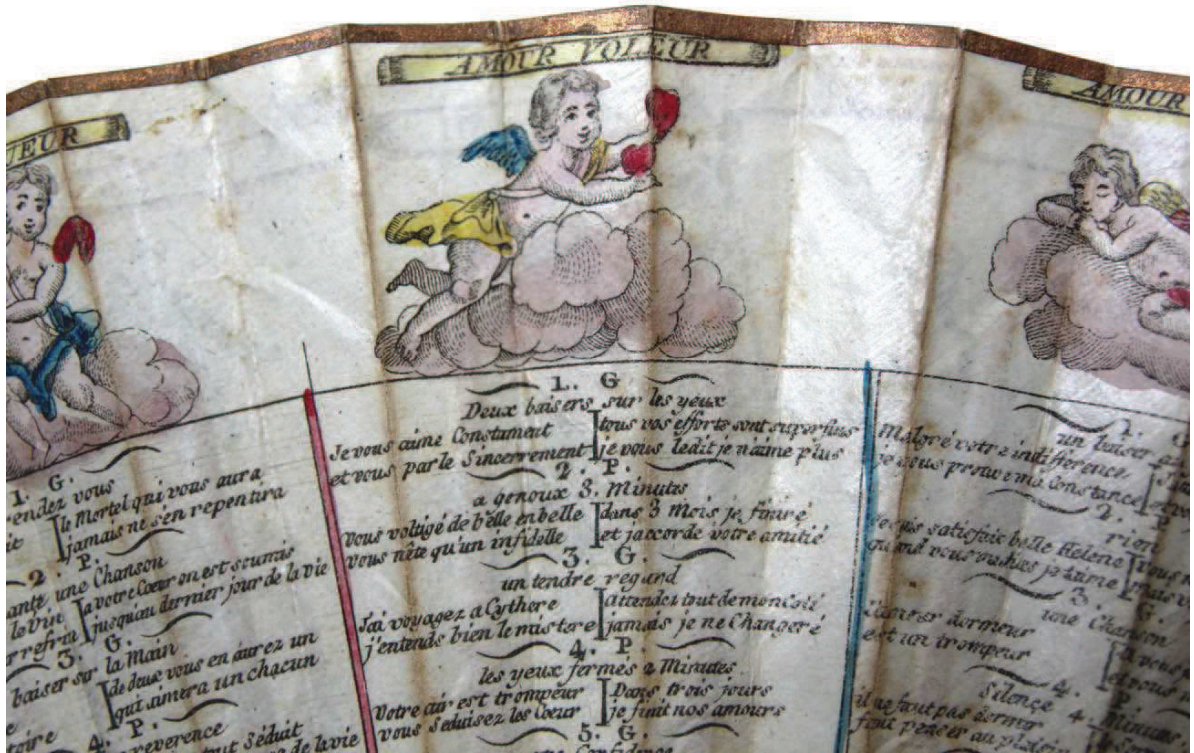 UEUR
1. G.
rendez vous
it
le Mortel qui vous aura
jamais ne s'en repentira
2. P.
ante une Chanson
le Vin
r refrin
a votre Cœur on est soumis
jusqu'au dernier jour de la vie
3. G.
baiser sur la Main
de deux vous en aurez un
qui aimera un chacun
4. P.
reverence
tout Séduit
AMOUR VOLEUR
1. G
Deux baisers sur les yeux
Je vous aime Constament
et vous parle Sincerrement
tous vos efforts sont superflus
je vous ledit je n'aime plus
2. P.
a genoux 3. Minutes
vous voltigé de belle en belle
vous nête qu'un infidelle
dans 3 Mois je finiré
et jaccorde votre amitié
3. G.
un tendre regard
J'ai voyagez a Cythere
j'entends bien le mistere
attendez tout de mon Coté
jamais je ne Changeré
4. P.
les yeux fermés 2 Minutes
Votre air est trompeur
vous Séduisez les Coeur
Dans trois jours
je finit nos amours
5. G.
une Confidence
AMOUR
1. G
un baiser
Malgré votre indifference
je vous prouve ma Constance
2. P
rien
satisfait belle Helene
3. G.
une Chanson
l'amour dormeur
e et un trompeur
4. P.
Silence 4 Minutes
il ne faut pas dormir